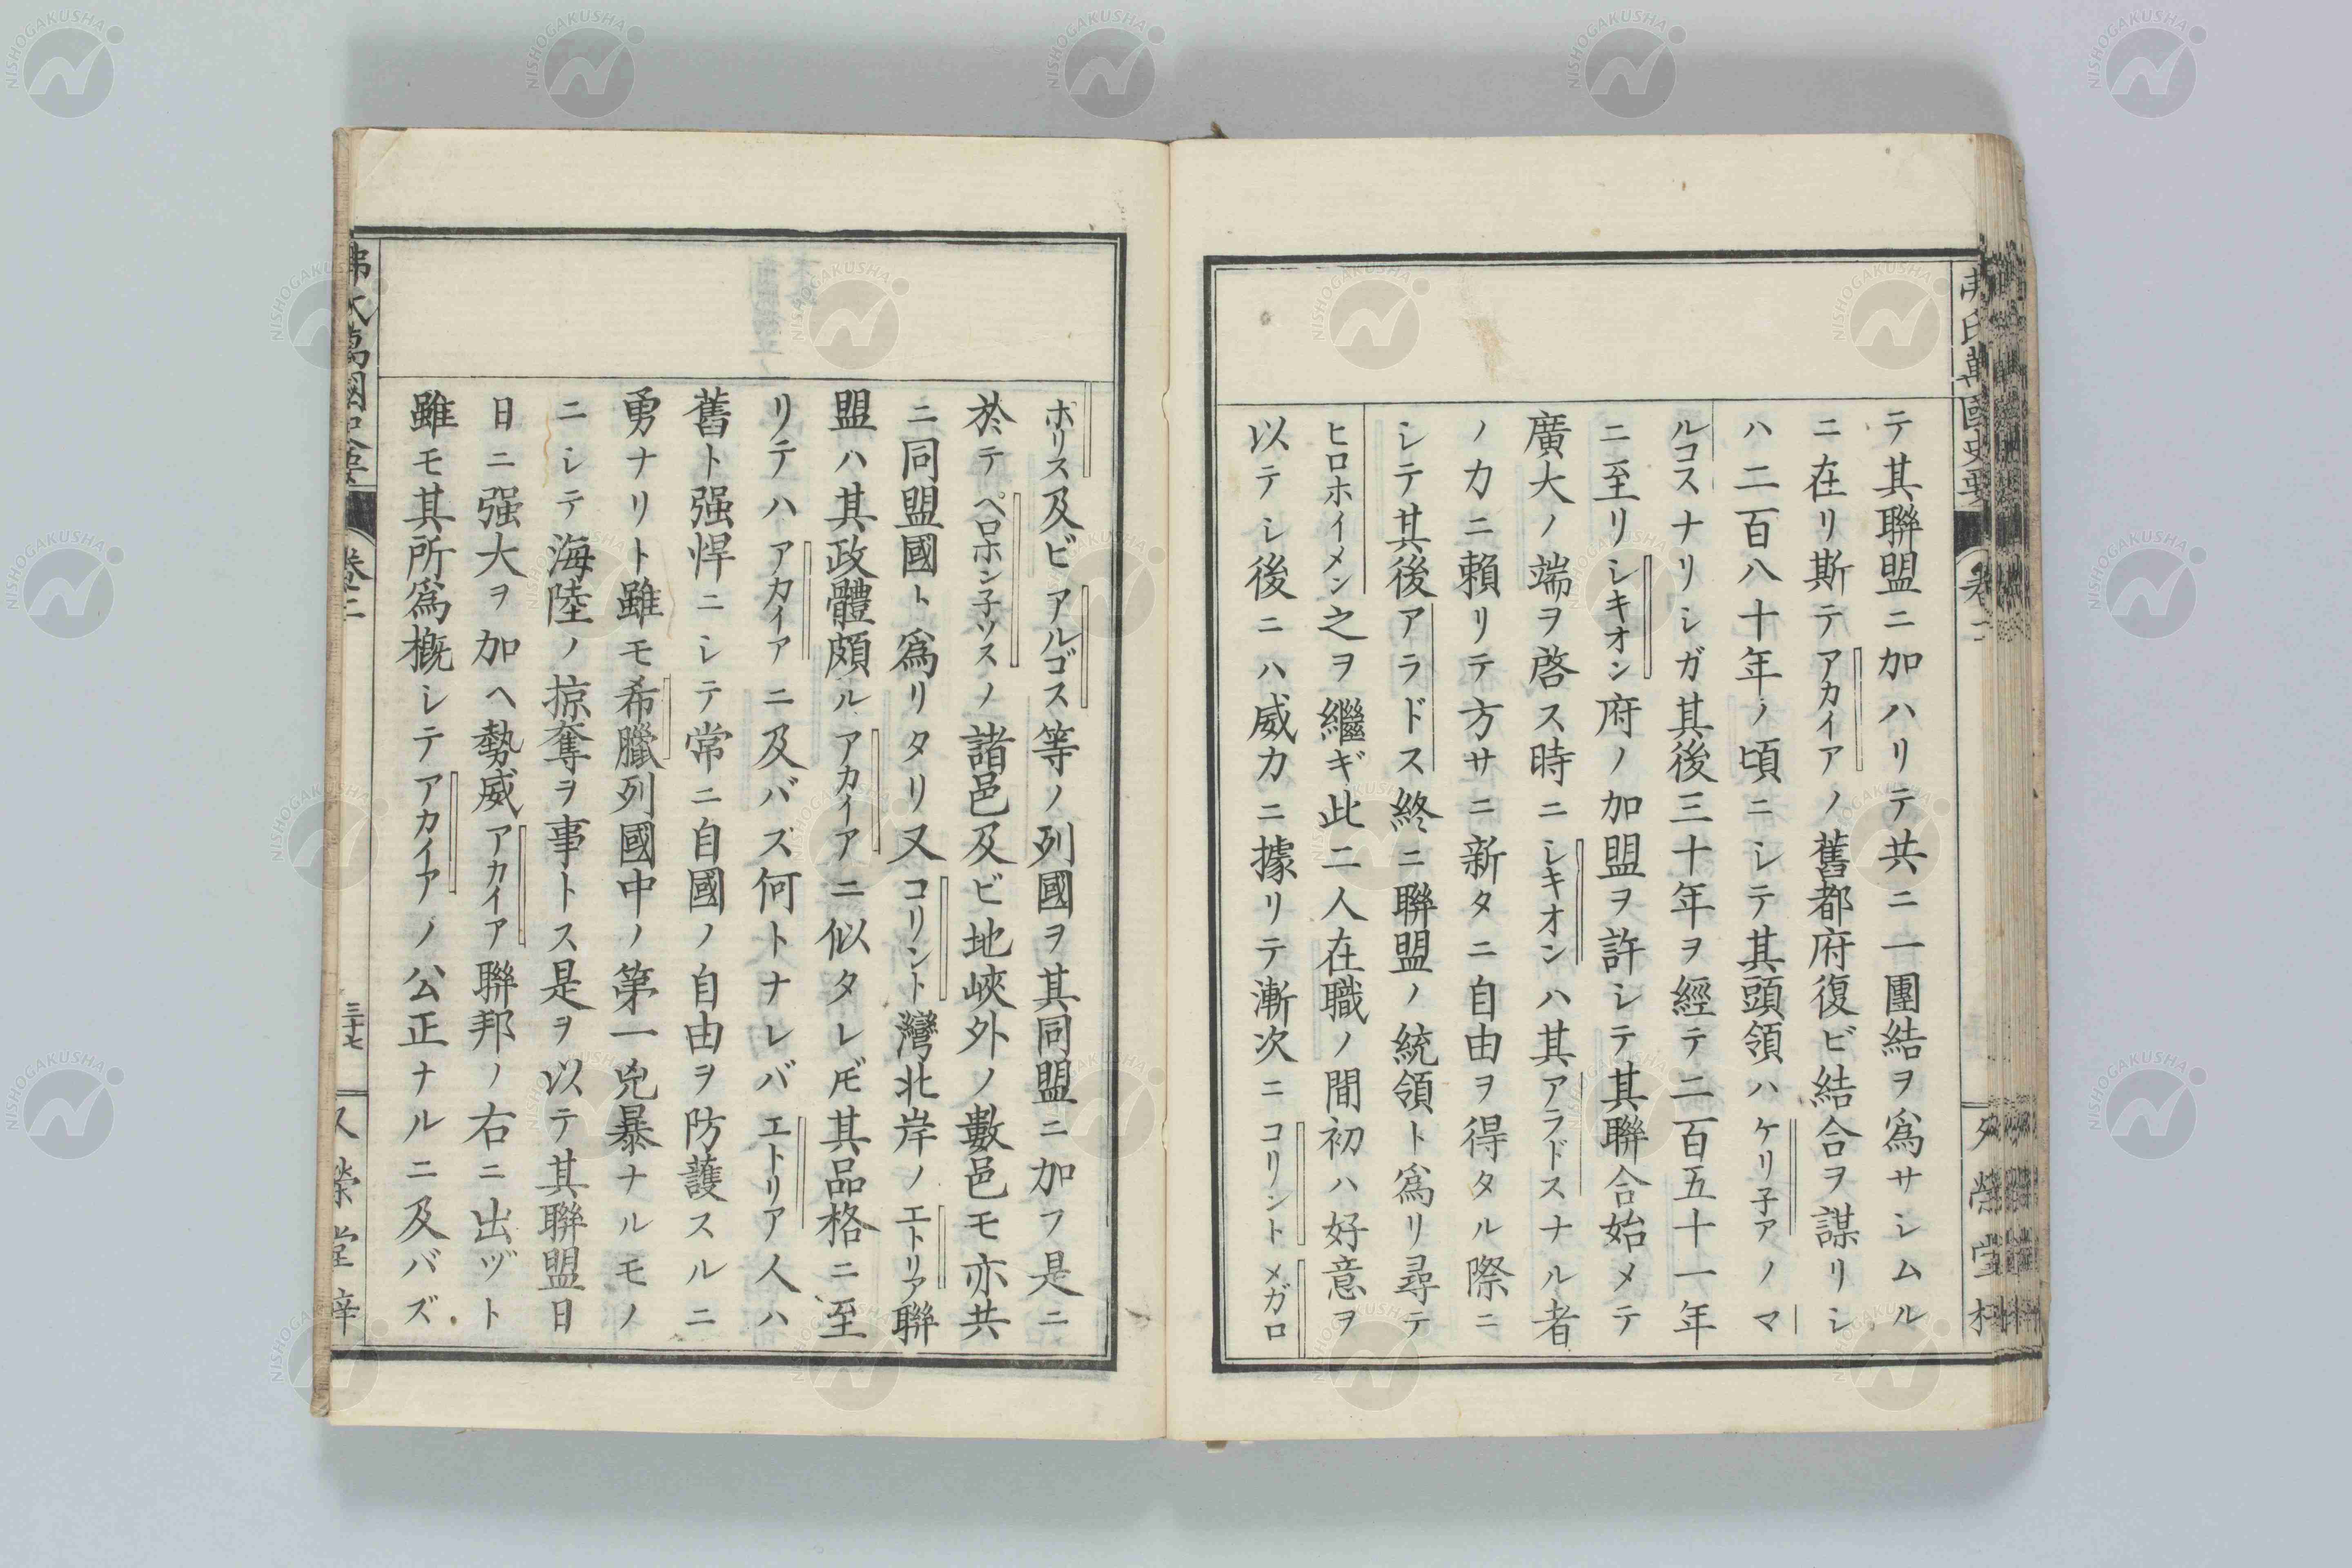 テ其聯盟ニ加ハリテ共ニ一團結ヲ爲サシムル
ニ在リ斯テアカイアノ舊都府復ビ結合ヲ謀リシ
ハ二百八十年ノ頃ニシテ其頭領ハケリ子アノマ
ルコスナリシガ其後三十年ヲ經テ二百五十一年
ニ至リシキオン府ノ加盟ヲ許シテ其聯合始メテ
廣大ノ端ヲ啓ス時ニシキオンハ其アラドスナル者
ノカニ賴リテ方サニ新タニ自由ヲ得タル際ニ
シテ其後アラドス終ニ聯盟ノ統領ト爲リ尋テ
ヒロホイメン之ヲ繼ギ此二人在職ノ間初ハ好意ヲ
以テシ後ニハ威力ニ據リテ漸次ニコリントメガロ
ホリス及ビアルゴス等ノ列國ヲ其同盟ニ加フ是ニ
於テペロホン子ツスノ諸邑及ビ地峽外ノ數邑モ亦共
ニ同盟國ト爲リタリ又コリント灣北岸ノエトリア聯
盟ハ其政體頗ルアカイアニ似タレ𪜈其品格ニ至
リテハアカイアニ及バズ何トナレバエトリア人ハ
舊ト强悍ニシテ常ニ自國ノ自由ヲ防護スルニ
勇ナリト雖モ希臘列國中ノ第一兇暴ナルモノ
ニシテ海陸ノ掠奪ヲ事トス是ヲ以テ其聯盟日
日ニ强大ヲ加ヘ勢威アカイア聯邦ノ右ニ出ヅト
雖モ其所爲槪シテアカイアノ公正ナルニ及バズ
卷二
三十七
NISHOGAKUSHA